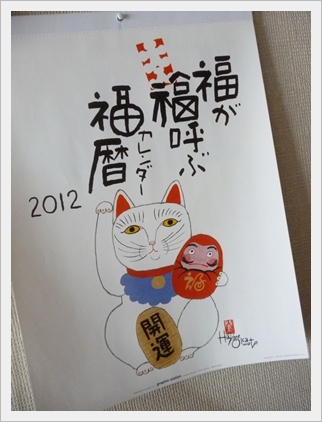 福が
福呼ぶ
カレンダー
福暦
2012
福
開運